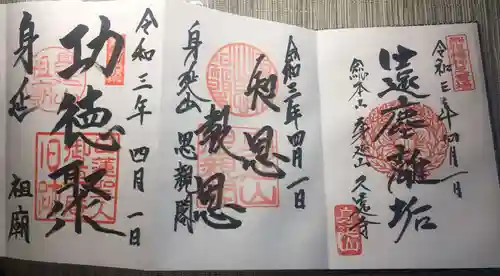 令和三年四月一日
遠塵離垢
総本山 身延山 久遠寺
令和三年四月一日
知恩
教恩
身延山 思親閣
令和三年 四月 一日
功徳聚
身延 祖廟